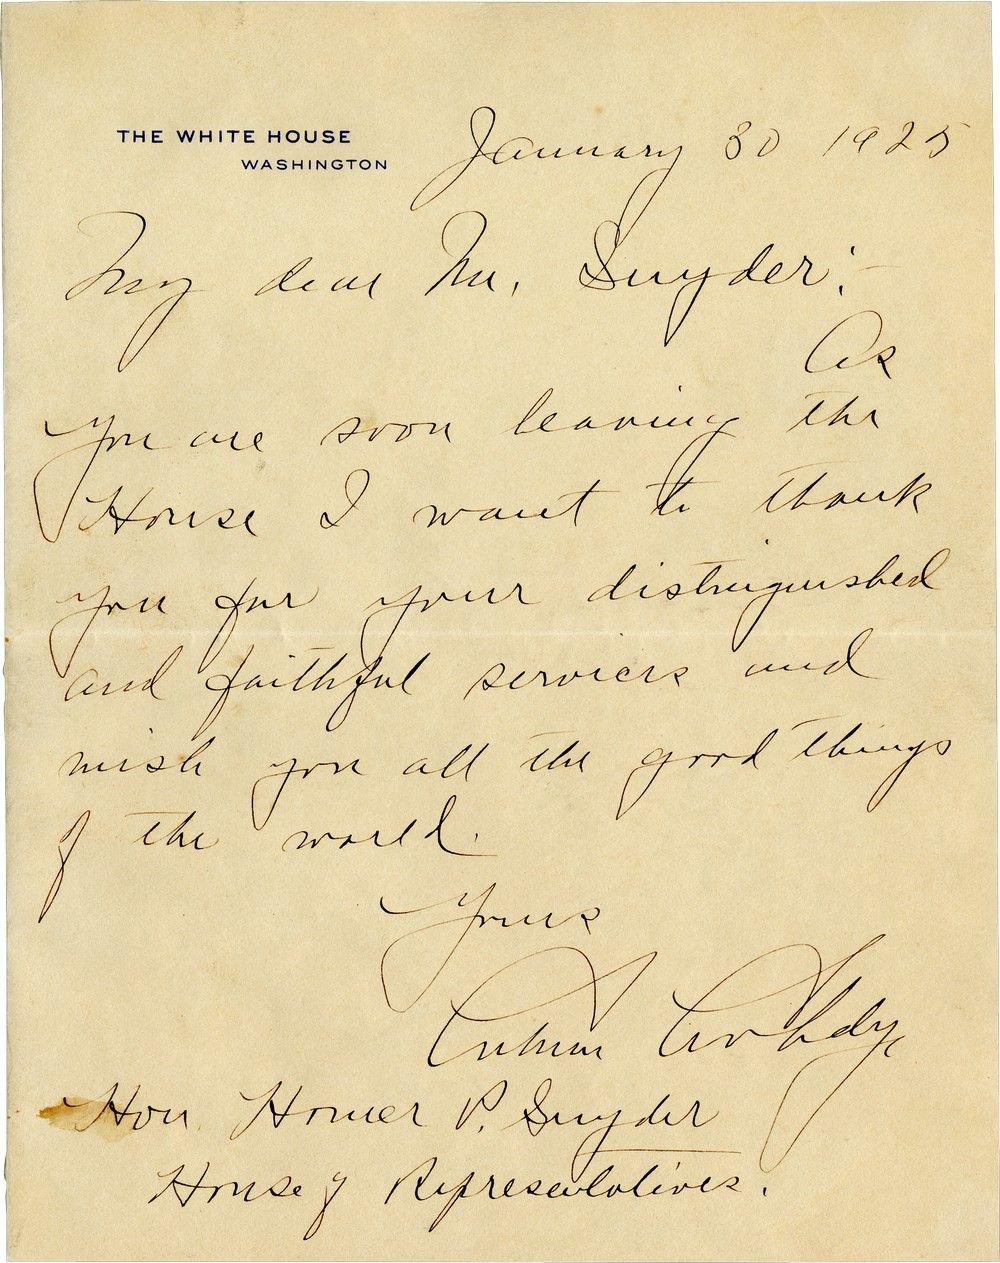 THE WHITE HOUSE
WASHINGTON
January 30 1925
My dear Mr. Snyder:-
As
you are soon leaving the
House I want to thank
you for your distinguished
and faithful services and
wish you all the good things
of the world.
Yours
Calvin Coolidge
Hon Homer P. Snyder
House of Representatives.